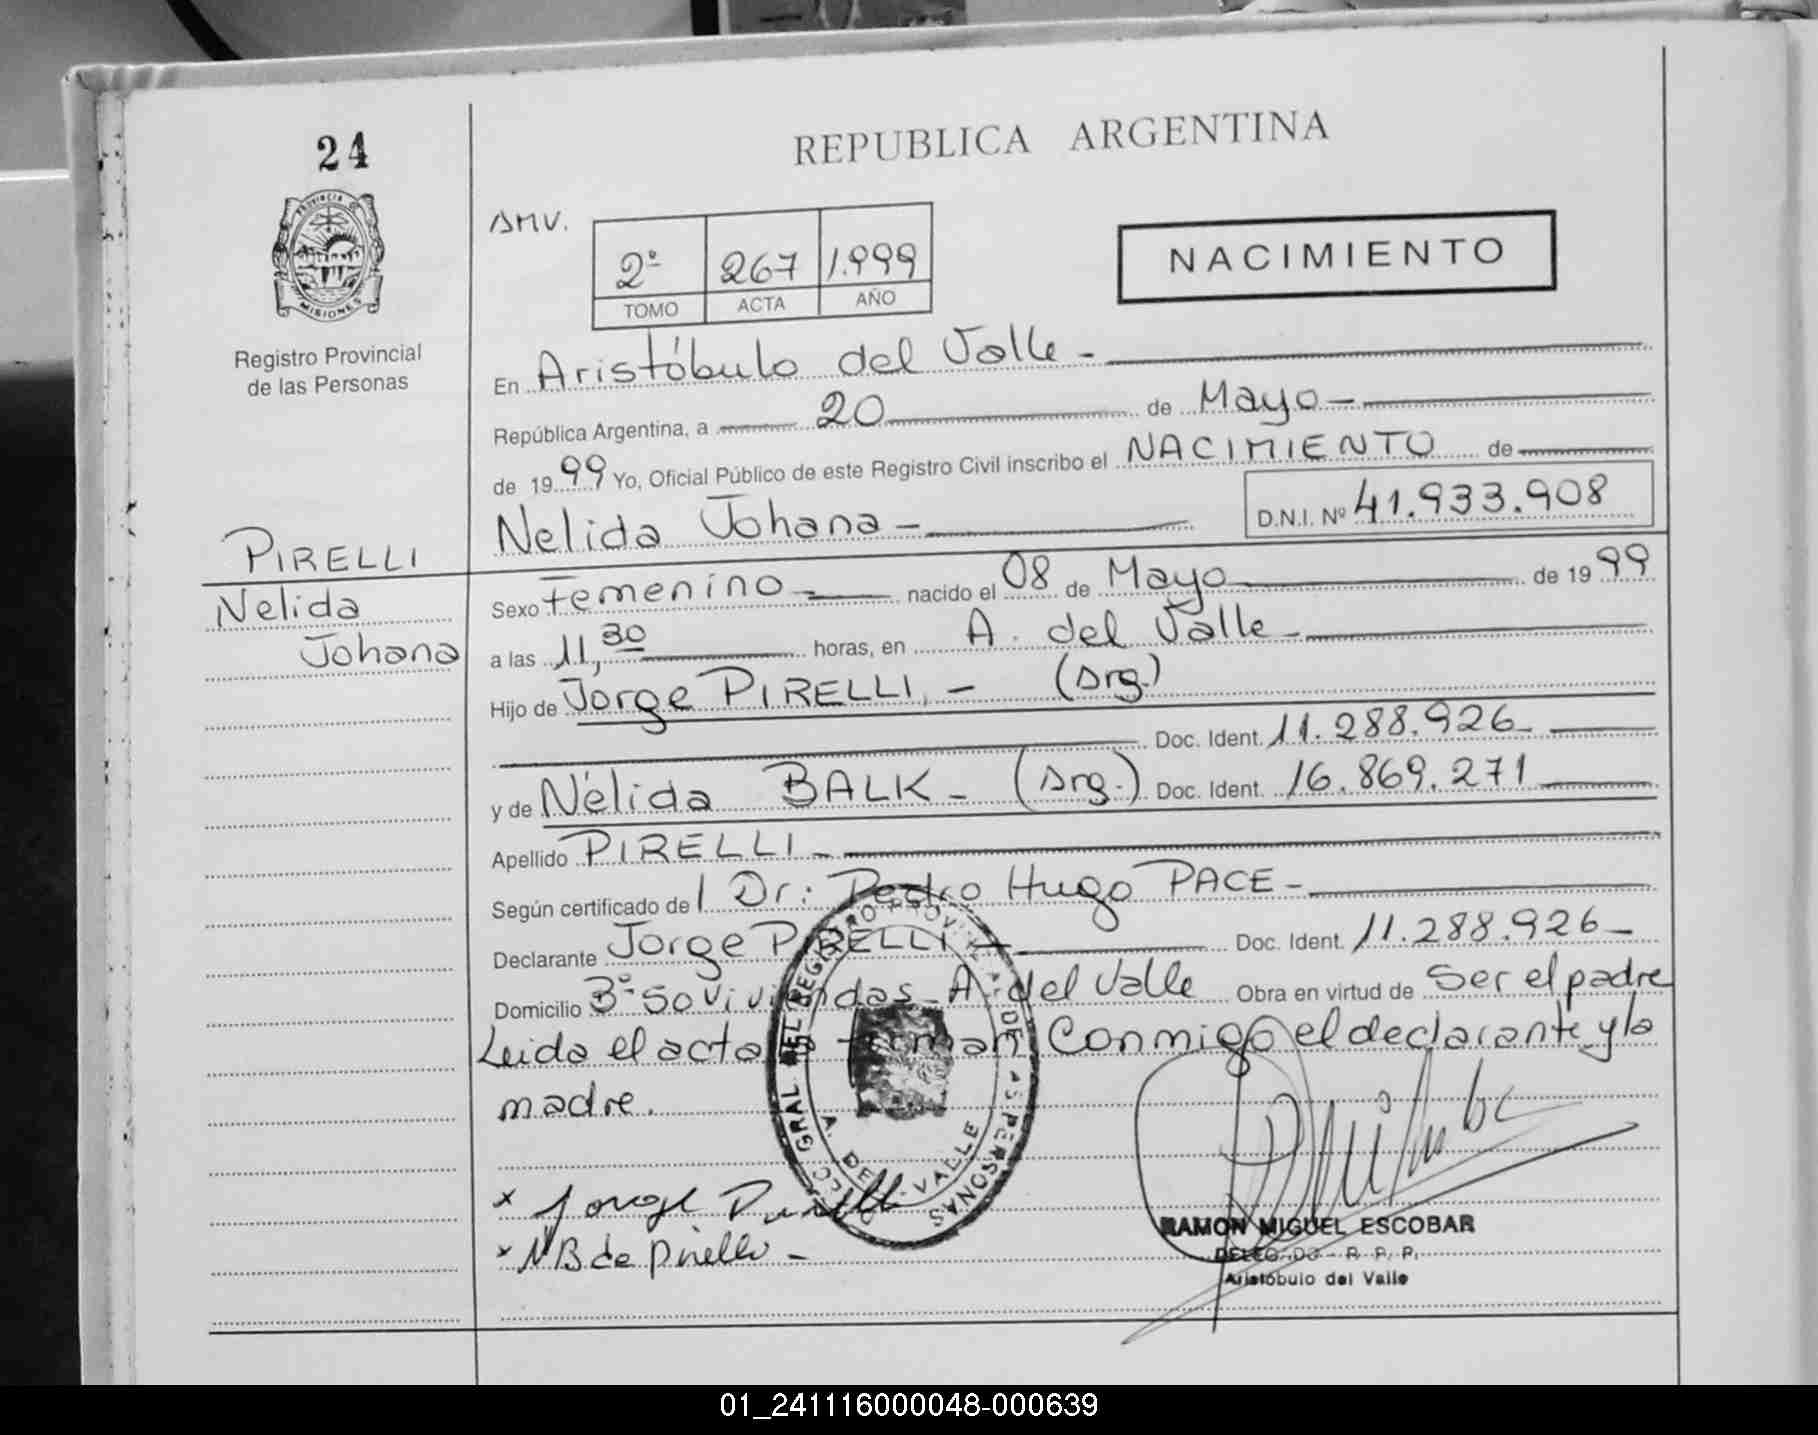 24
REPUBLICA ARGENTINA
PROVINCIA DE
MISIONES
Registro Provincial
de las Personas
AMV.
2º 267 1.999
TOMO ACTA AÑO
NACIMIENTO
En Aristóbulo del Valle -
República Argentina, a 20 de Mayo -
de 1999 Yo, Oficial Público de este Registro Civil inscribo el NACIMIENTO de
Nelida Johana -
D.N.I. Nº 41.933.908
PIRELLI
Nelida
Johana
Sexo Femenino - nacido el 08 de Mayo de 1999
a las 11,30 horas, en A. del Valle -
Hijo de Jorge PIRELLI, - (Arg.)
Doc. Ident. 11.288.926 -
y de Nélida BALK - (Arg.) Doc. Ident. 16.869.271
Apellido PIRELLI -
Según certificado del Dr: Pedro Hugo PACE -
Declarante Jorge PIRELLI - Doc. Ident. 11.288.926 -
Domicilio Bº 50 viviendas - A. del Valle Obra en virtud de Ser el padre
Leida el acta la firman Conmigo el declarante y la
madre.
DELEG. GRAL DEL REGISTRO PROVINCIAL DE LAS PERSONAS
A. DEL VALLE
x Jorge Pirelli
x NB de Pirelli -
RAMON MIGUEL ESCOBAR
DELEGADO - R. P. P.
Aristóbulo del Valle
01_241116000048-000639